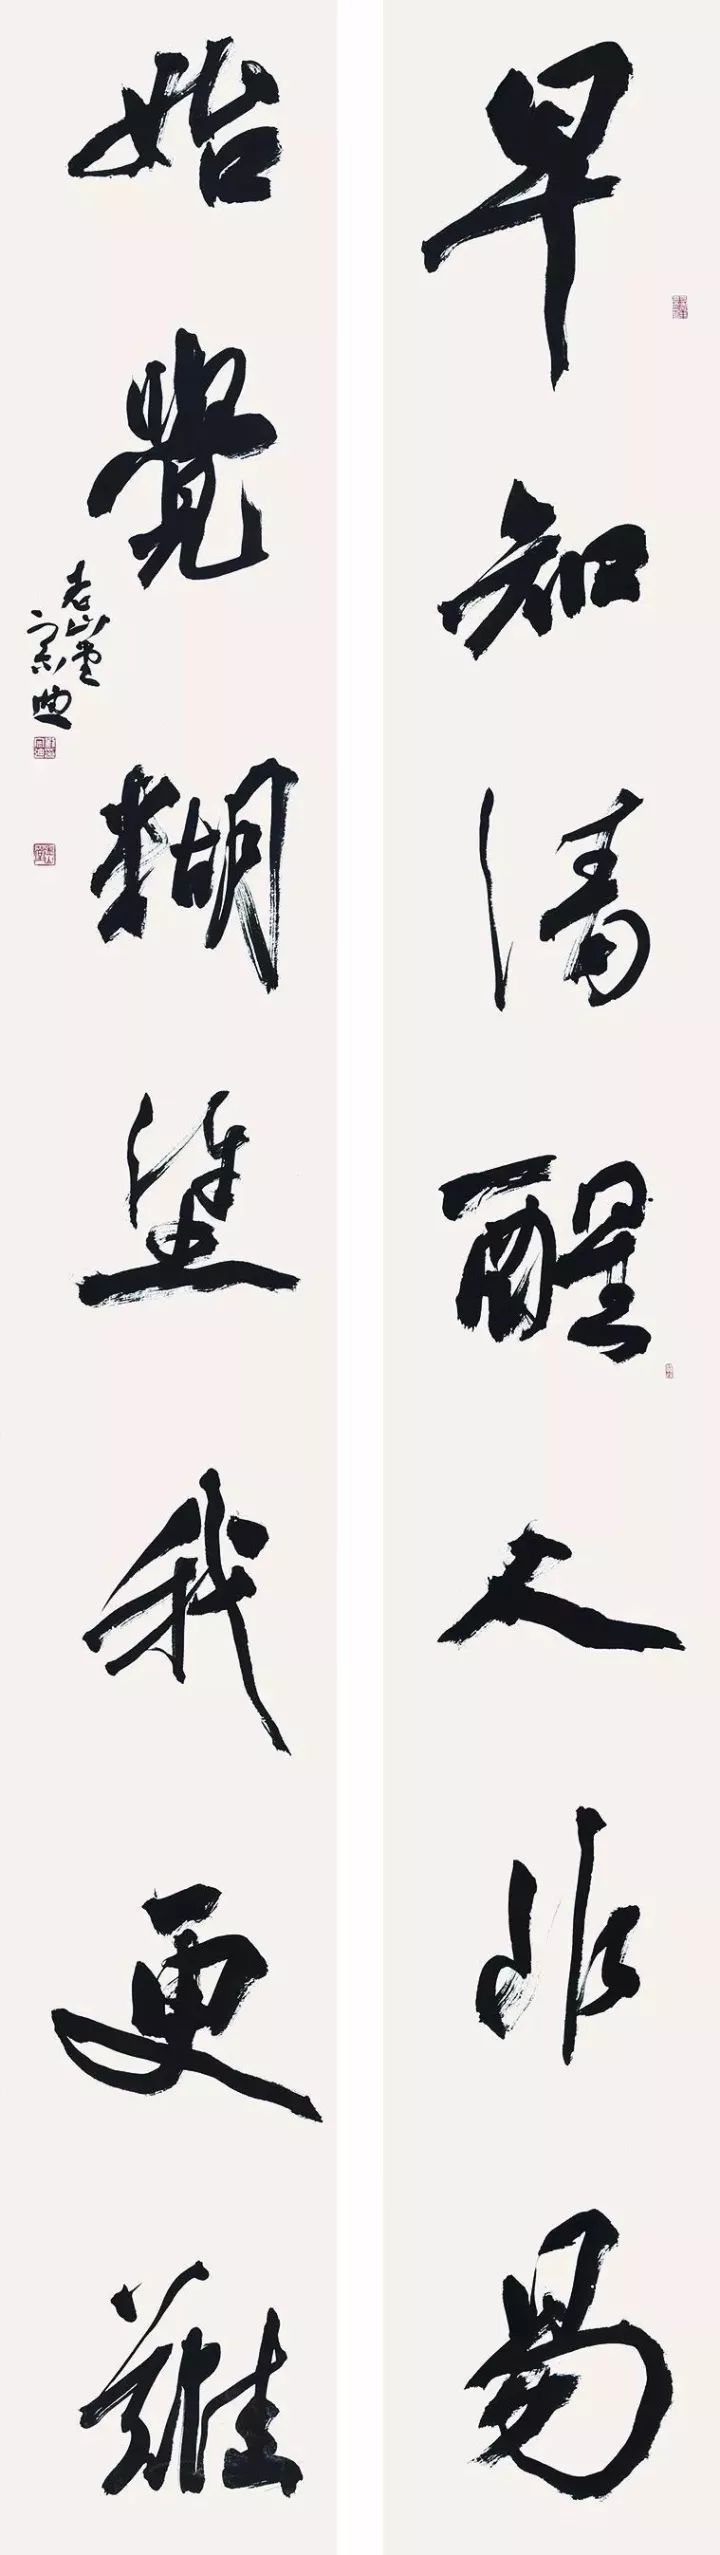 早知清醒人非易
始覺糊塗我更難